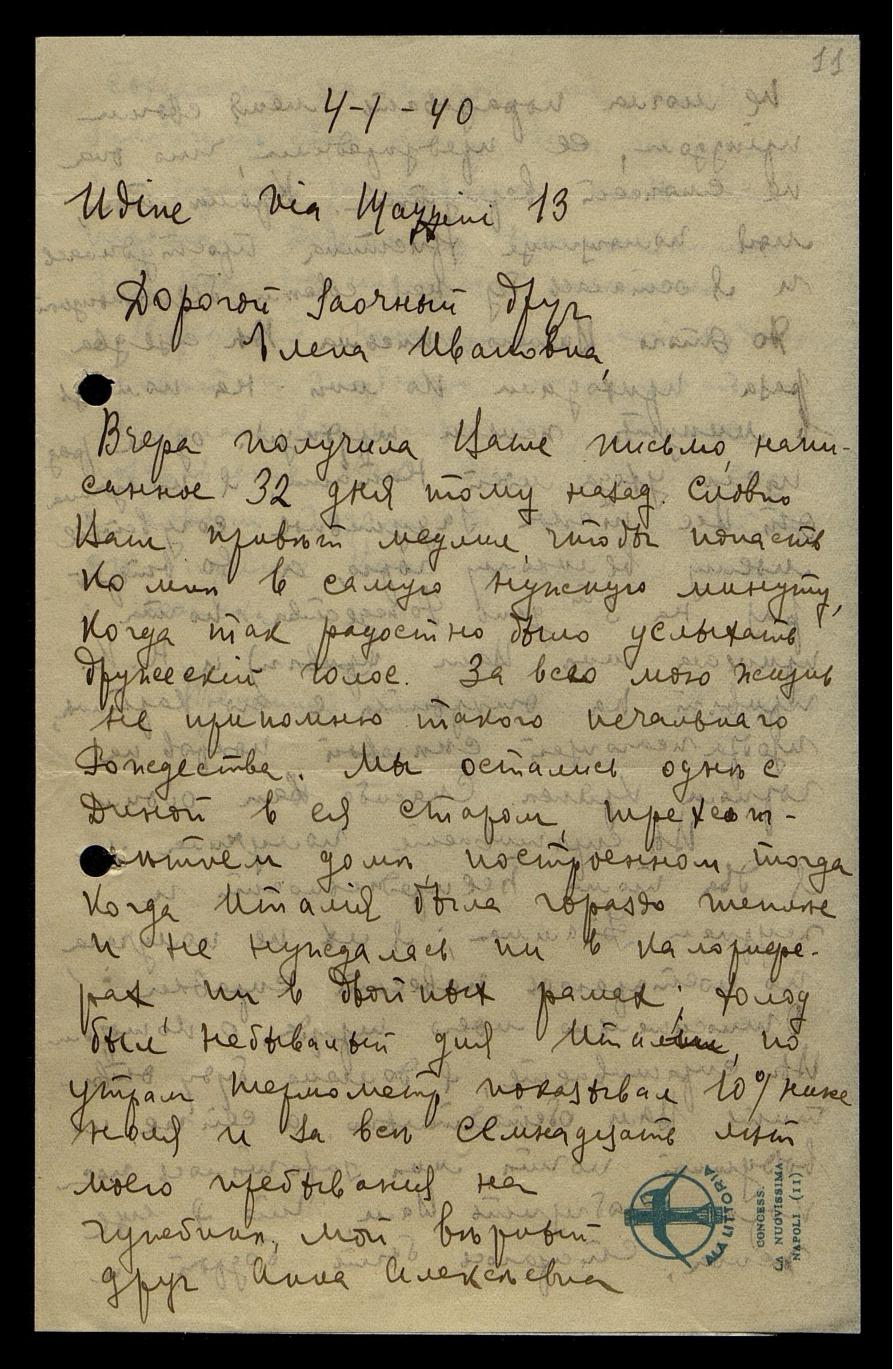 11
4-1-40
Udine Via Mazzini 13
Дорогой заочный друг
Елена Ивановна,
Вчера получила Ваше письмо, напи-
санное 32 дня тому назад. Словно
Ваш привѣт медлил, чтобы попасть
ко мнѣ в самую нужную минуту,
когда так радостно было услыхать
дружескій голос. За всю мою жизнь
не припомню такого печальнаго
Рождества. Мы остались однѣ с
Диной в ея старом, трехсот-
лѣтнем домѣ, построенном тогда
когда Италія была гораздо теплѣе
и не нуждалась ни в калорифе-
рах, ни в двойных рамах; холод
был небывалый для Италіи, по
утрам термометр показывал 10° ниже
ноля и за всѣ семнадцать лѣт
моего пребыванія на
чужбинѣ, мой вѣрный
друг Анна Алексѣевна
ALA LITTORIA
CONCESS.
LA NUOVISSIMA
NAPOLI (II)